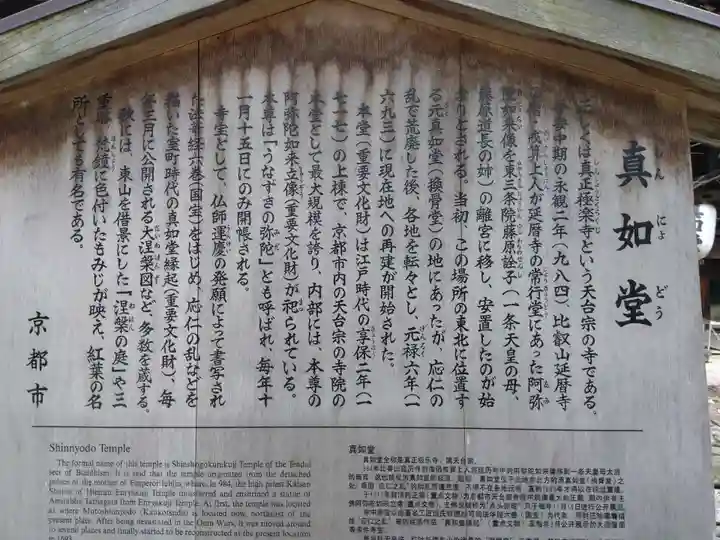 真如堂
しん にょ どう
正しくは真正極楽寺という天台宗の寺である。
平安中期の永観二年（九八四）、比叡山延暦寺
の僧・戒算上人が延暦寺の常行堂にあった阿弥
陀如来像を東三条院藤原詮子（一条天皇の母、
藤原道長の姉）の離宮に移し、安置したのが始
まりとされる。当初、この場所の東北に位置す
る元真如堂（換骨堂）の地にあったが、応仁の
乱で荒廃した後、各地を転々とし、元禄六年（一
六九三）に現在地への再建が開始された。
本堂（重要文化財）は江戸時代の享保二年（一
七一七）の上棟で、京都市内の天台宗の寺院の
本堂として最大規模を誇り、内部には、本尊の
阿弥陀如来立像（重要文化財）が祀られている。
本尊は「うなずきの弥陀」とも呼ばれ、毎年十
一月十五日にのみ開帳される。
寺宝として、仏師運慶の発願によって書写され
た法華経六巻（国宝）をはじめ、応仁の乱などを
描いた室町時代の真如堂縁起（重要文化財）、毎
年三月に公開される大涅槃図など、多数を蔵する。
秋には、東山を借景にした「涅槃の庭」や三
重塔、本堂に色付いたもみじが映え、紅葉の名
所としても有名である。
京都市
Shinnyodo Temple
The formal name of this temple is Shinshogokurakuji Temple of the Tendai
sect of Buddhism. It is said that the temple originates from the detached
palace of the mother of Emperor Ichijo, where, in 984, the high priest Kaisan
Shonin of Hieizan Enryakuji Temple transferred and enshrined a statue of
Amitabha Tathagata from Enryakuji Temple. At first, the temple was located
at where Motoshinnyodo (Kankotsudo) is located now, northeast of the
present place. After being devastated in the Onin Wars, it was moved around
to several places and finally started to be reconstructed at the present location
in 1693.
真如堂